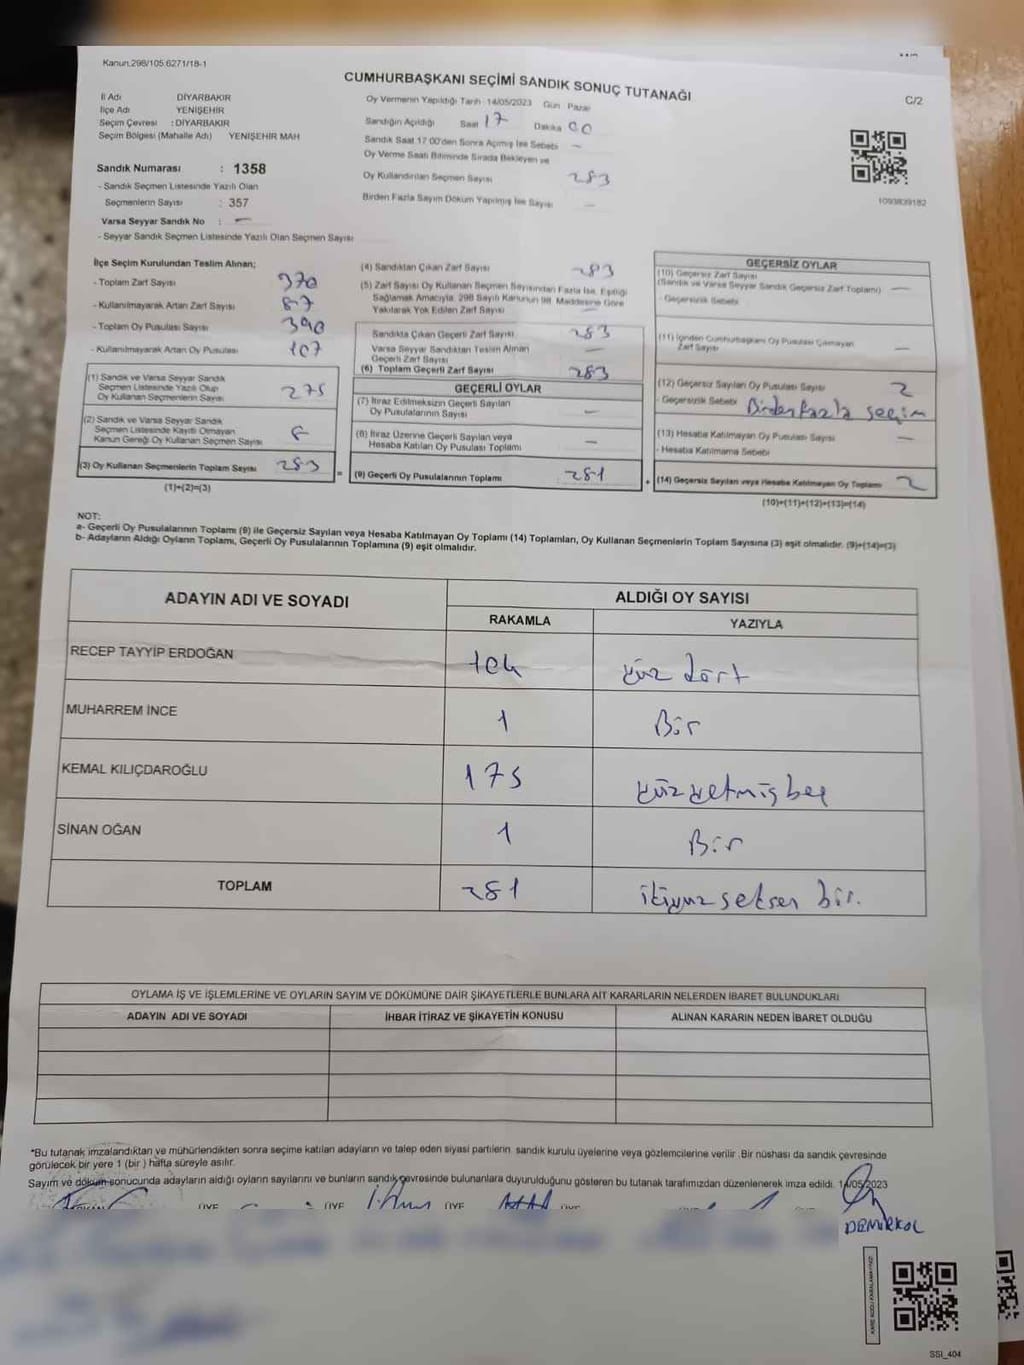 Kanun.298/105.6271/18-1
CUMHURBAŞKANI SEÇİMİ SANDIK SONUÇ TUTANAĞI
C/2
İl Adı DİYARBAKIR
İlçe Adı YENİŞEHİR
Seçim Çevresi : DİYARBAKIR
Seçim Bölgesi (Mahalle Adı) YENİŞEHİR MAH
Sandık Numarası : 1358
- Sandık Seçmen Listesinde Yazılı Olan
Seçmenlerin Sayısı : 357
Varsa Seyyar Sandık No : —
- Seyyar Sandık Seçmen Listesinde Yazılı Olan Seçmen Sayısı
Oy Vermenin Yapıldığı Tarih :14/05/2023 Gün Pazar
Sandığın Açıldığı Saat 17 Dakika 00
Sandık Saat 17:00'den Sonra Açılmış İse Sebebi —
Oy Verme Saati Bitiminde Sırada Bekleyen ve
Oy Kullandırılan Seçmen Sayısı 283
Birden Fazla Sayım Döküm Yapılmış İse Sayısı —
1093839182
İlçe Seçim Kurulundan Teslim Alınan;
- Toplam Zarf Sayısı 370
- Kullanılmayarak Artan Zarf Sayısı 87
- Toplam Oy Pusulası Sayısı 390
- Kullanılmayarak Artan Oy Pusulası 107
(1) Sandık ve Varsa Seyyar Sandık
Seçmen Listesinde Yazılı Olup
Oy Kullanan Seçmenlerin Sayısı 275
(2) Sandık ve Varsa Seyyar Sandık
Seçmen Listesinde Kayıtlı Olmayan
Kanun Gereği Oy Kullanan Seçmen Sayısı 8
(3) Oy Kullanan Seçmenlerin Toplam Sayısı 283 =
(1)+(2)=(3)
(4) Sandıktan Çıkan Zarf Sayısı 283
(5) Zarf Sayısı Oy Kullanan Seçmen Sayısından Fazla İse, Eşitliği
Sağlamak Amacıyla, 298 Sayılı Kanunun 98. Maddesine Göre
Yakılarak Yok Edilen Zarf Sayısı —
Sandıkta Çıkan Geçerli Zarf Sayısı 283
Varsa Seyyar Sandıktan Teslim Alınan
Geçerli Zarf Sayısı —
(6) Toplam Geçerli Zarf Sayısı 283
GEÇERLİ OYLAR
(7) İtiraz Edilmeksizin Geçerli Sayılan
Oy Pusulalarının Sayısı —
(8) İtiraz Üzerine Geçerli Sayılan veya
Hesaba Katılan Oy Pusulası Toplamı —
(9) Geçerli Oy Pusulalarının Toplamı 281 +
GEÇERSİZ OYLAR
(10) Geçersiz Zarf Sayısı
(Sandık ve Varsa Seyyar Sandık Geçersiz Zarf Toplamı) —
- Geçersizlik Sebebi
(11) İçinden Cumhurbaşkanı Oy Pusulası Çıkmayan
Zarf Sayısı —
(12) Geçersiz Sayılan Oy Pusulası Sayısı 2
- Geçersizlik Sebebi Birden fazla seçim
(13) Hesaba Katılmayan Oy Pusulası Sayısı —
- Hesaba Katılmama Sebebi
(14) Geçersiz Sayılan veya Hesaba Katılmayan Oy Toplamı 2
(10)+(11)+(12)+(13)=(14)
NOT:
a- Geçerli Oy Pusulalarının Toplamı (9) ile Geçersiz Sayılan veya Hesaba Katılmayan Oy Toplamı (14) Toplamları, Oy Kullanan Seçmenlerin Toplam Sayısına (3) eşit olmalıdır. (9)+(14)=(3)
b- Adayların Aldığı Oyların Toplamı, Geçerli Oy Pusulalarının Toplamına (9) eşit olmalıdır.
ADAYIN ADI VE SOYADI ALDIĞI OY SAYISI
RAKAMLA YAZIYLA
RECEP TAYYİP ERDOĞAN 104 Yüz dört
MUHARREM İNCE 1 Bir
KEMAL KILIÇDAROĞLU 175 Yüzyetmişbeş
SİNAN OĞAN 1 Bir
TOPLAM 281 ikiyüzseksen bir.
OYLAMA İŞ VE İŞLEMLERİNE VE OYLARIN SAYIM VE DÖKÜMÜNE DAİR ŞİKAYETLERLE BUNLARA AİT KARARLARIN NELERDEN İBARET BULUNDUKLARI
ADAYIN ADI VE SOYADI İHBAR İTİRAZ VE ŞİKAYETİN KONUSU ALINAN KARARIN NEDEN İBARET OLDUĞU
*Bu tutanak imzalandıktan ve mühürlendikten sonra seçime katılan adayların ve talep eden siyasi partilerin sandık kurulu üyelerine veya gözlemcilerine verilir .Bir nüshası da sandık çevresinde
görülecek bir yere 1 (bir ) hafta süreyle asılır.
Sayım ve döküm sonucunda adayların aldığı oyların sayılarını ve bunların sandık çevresinde bulunanlara duyurulduğunu gösteren bu tutanak tarafımızdan düzenlenerek imza edildi. 14/05/2023
ÜYE ÜYE ÜYE
DEMİRKOL
SSI_404